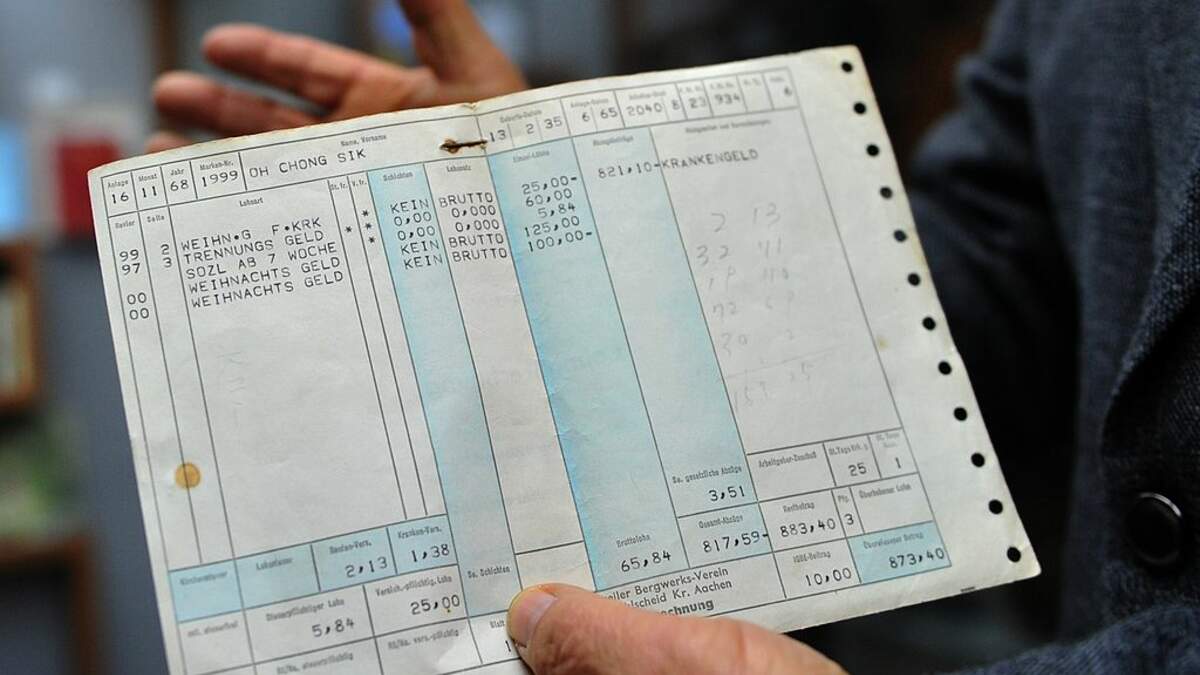 Anlage Monat Jahr Marken-Nr. Name, Vorname Geburts-Datum Anlege-Datum
16 11 68 1999 OH CHONG SIK 13 2 35 6 65 2040 8 23 934 6
Revier Seite Lohnart St.fr. V.fr. Schichten Lohnsatz Einzel-Löhne
99 2 WEIHN.G F.KRK * KEIN BRUTTO 25,00- 821,10-KRANKENGELD
97 3 TRENNUNGS GELD * * 0,00 0,000 60,00
SOZL AB 7 WOCHE * 0,00 0,000 5,84
00 WEIHNACHTS GELD KEIN BRUTTO 125,00
00 WEIHNACHTS GELD KEIN BRUTTO 100,00-
2 13
32 41
Arbeitgeber-Zuschuß
25 1
So. gesetzliche Abzüge
3,51
Kirchensteuer Lohnsteuer Renten-Vers. Kranken-Vers. So. Schichten Bruttolohn Gesamt-Abzüge Restbetrag Pfg. Überhobener Lohn
2,13 1,38 65,84 817,59- 883,40 3
Steuerpflichtiger Lohn Versich.-pflichtig. Lohn IGBE-Beitrag Überwiesener Betrag
5,84 25,00 10,00 873,40
ller Bergwerks-Verein
lscheid Kr. Aachen
chnung